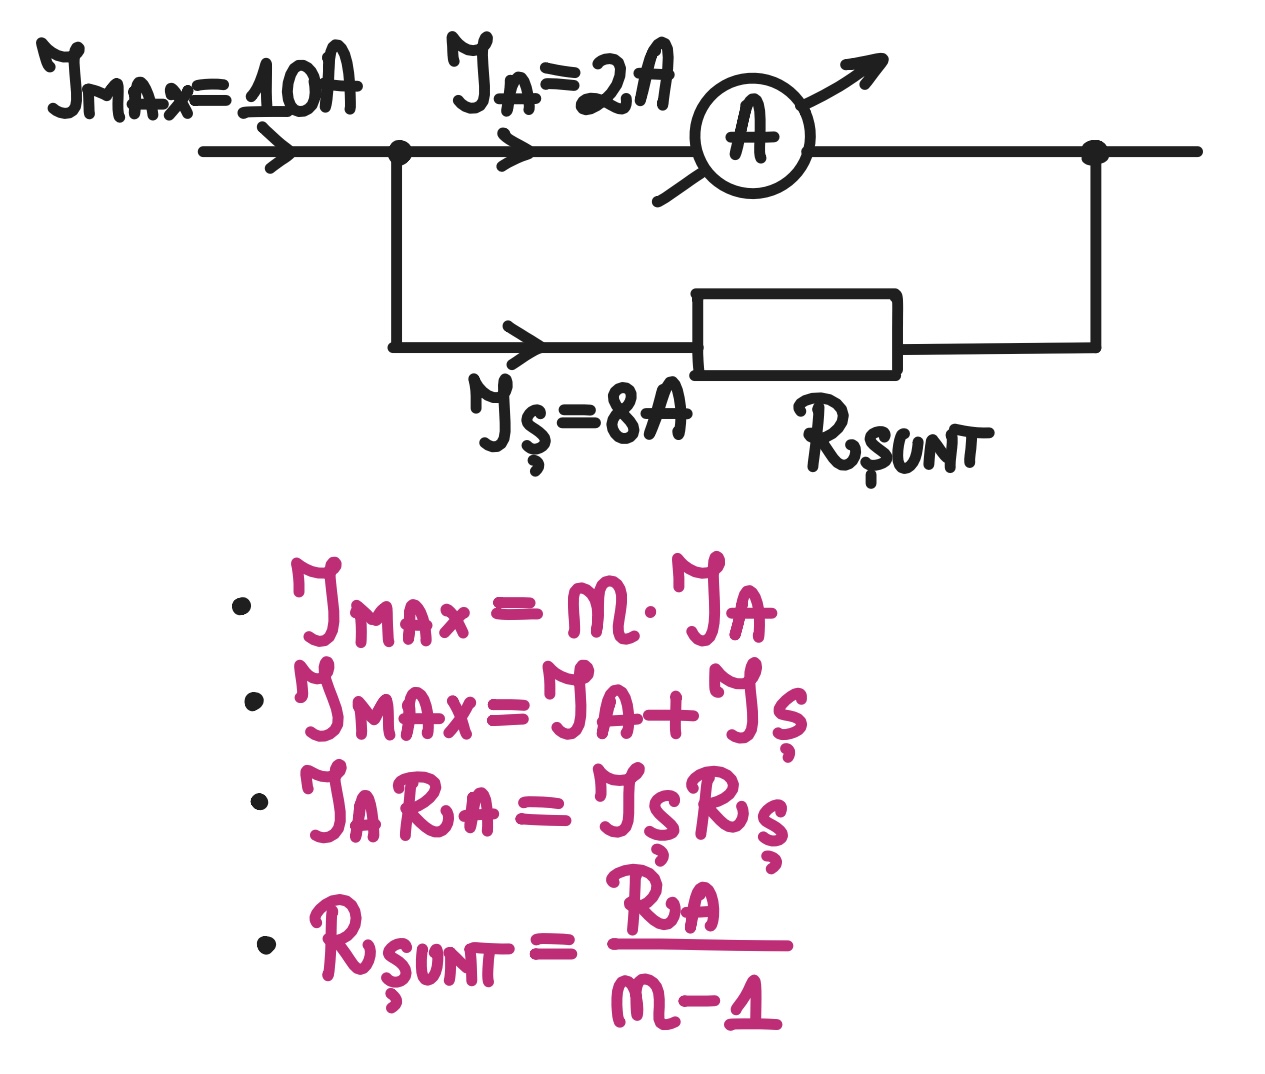 I_MAX = 10A
I_A = 2A
A
I_Ș = 8A
R_ȘUNT
• I_MAX = n · I_A
• I_MAX = I_A + I_Ș
• I_A R_A = I_Ș R_Ș
• R_ȘUNT = R_A / (n - 1)